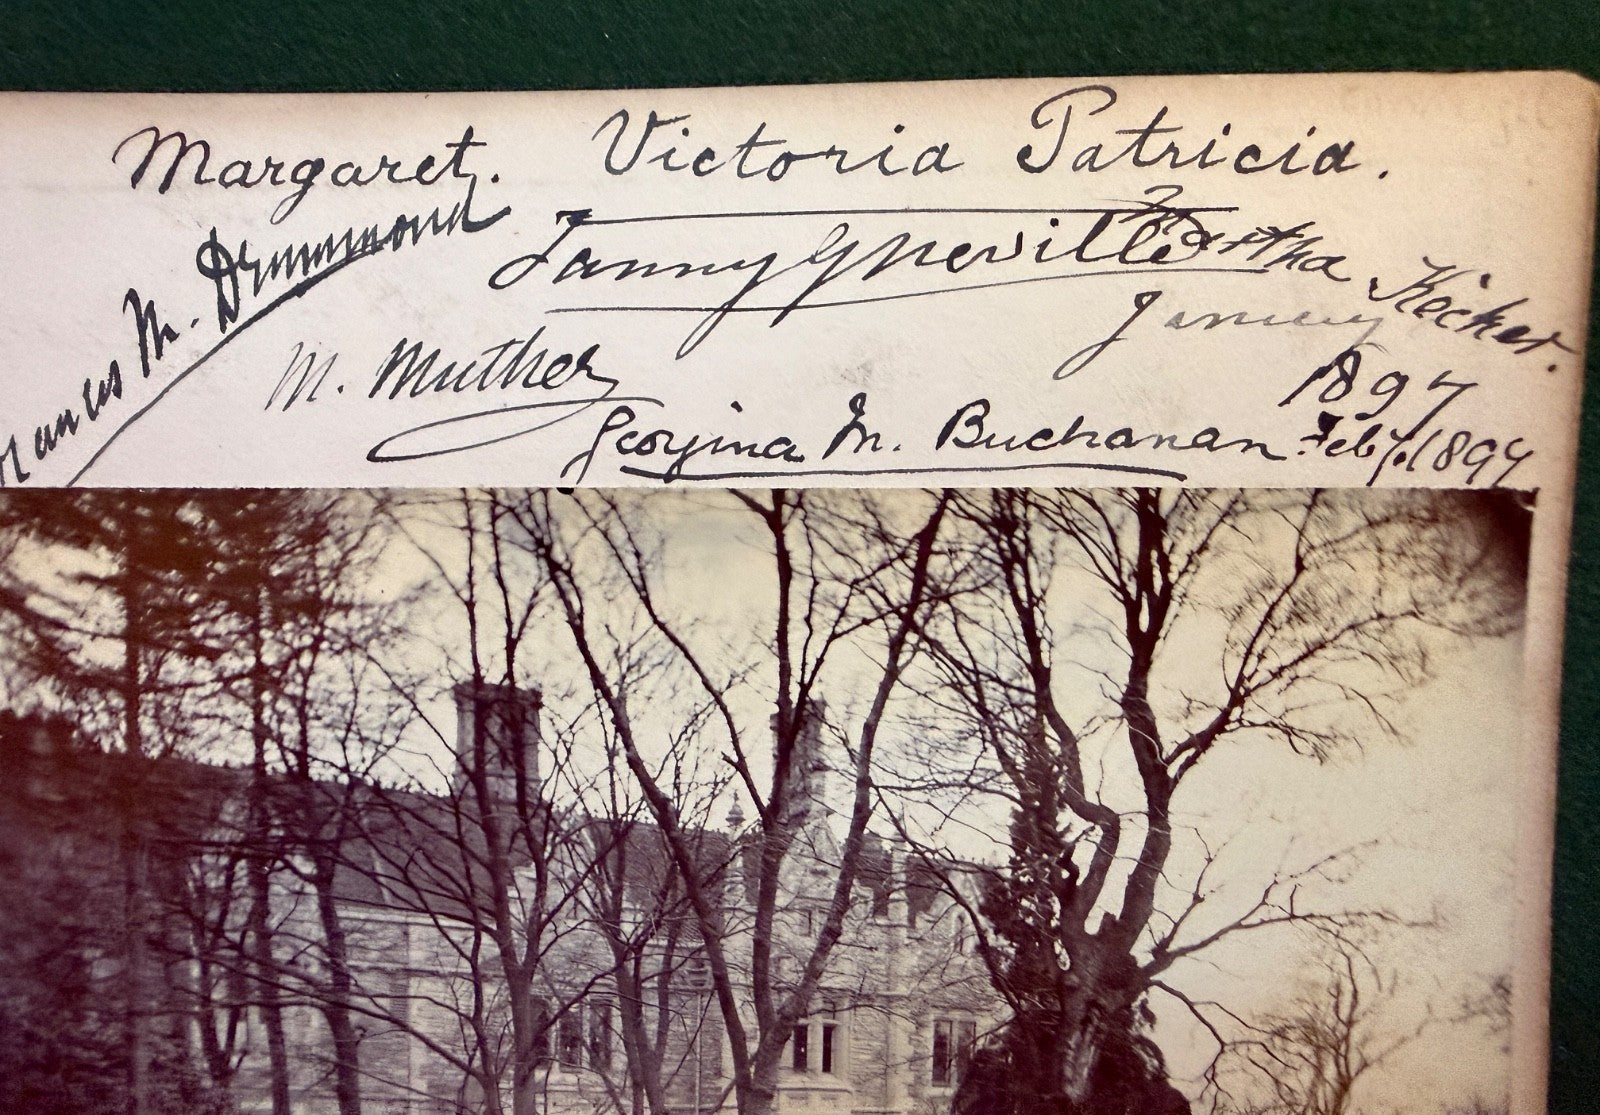 Margaret. Victoria Patricia.
Frances M. Drummond
Fanny G Neville
Martha Kecker.
January
1897
M. Muther
Georgina M. Buchanan. Feb/y. 1897